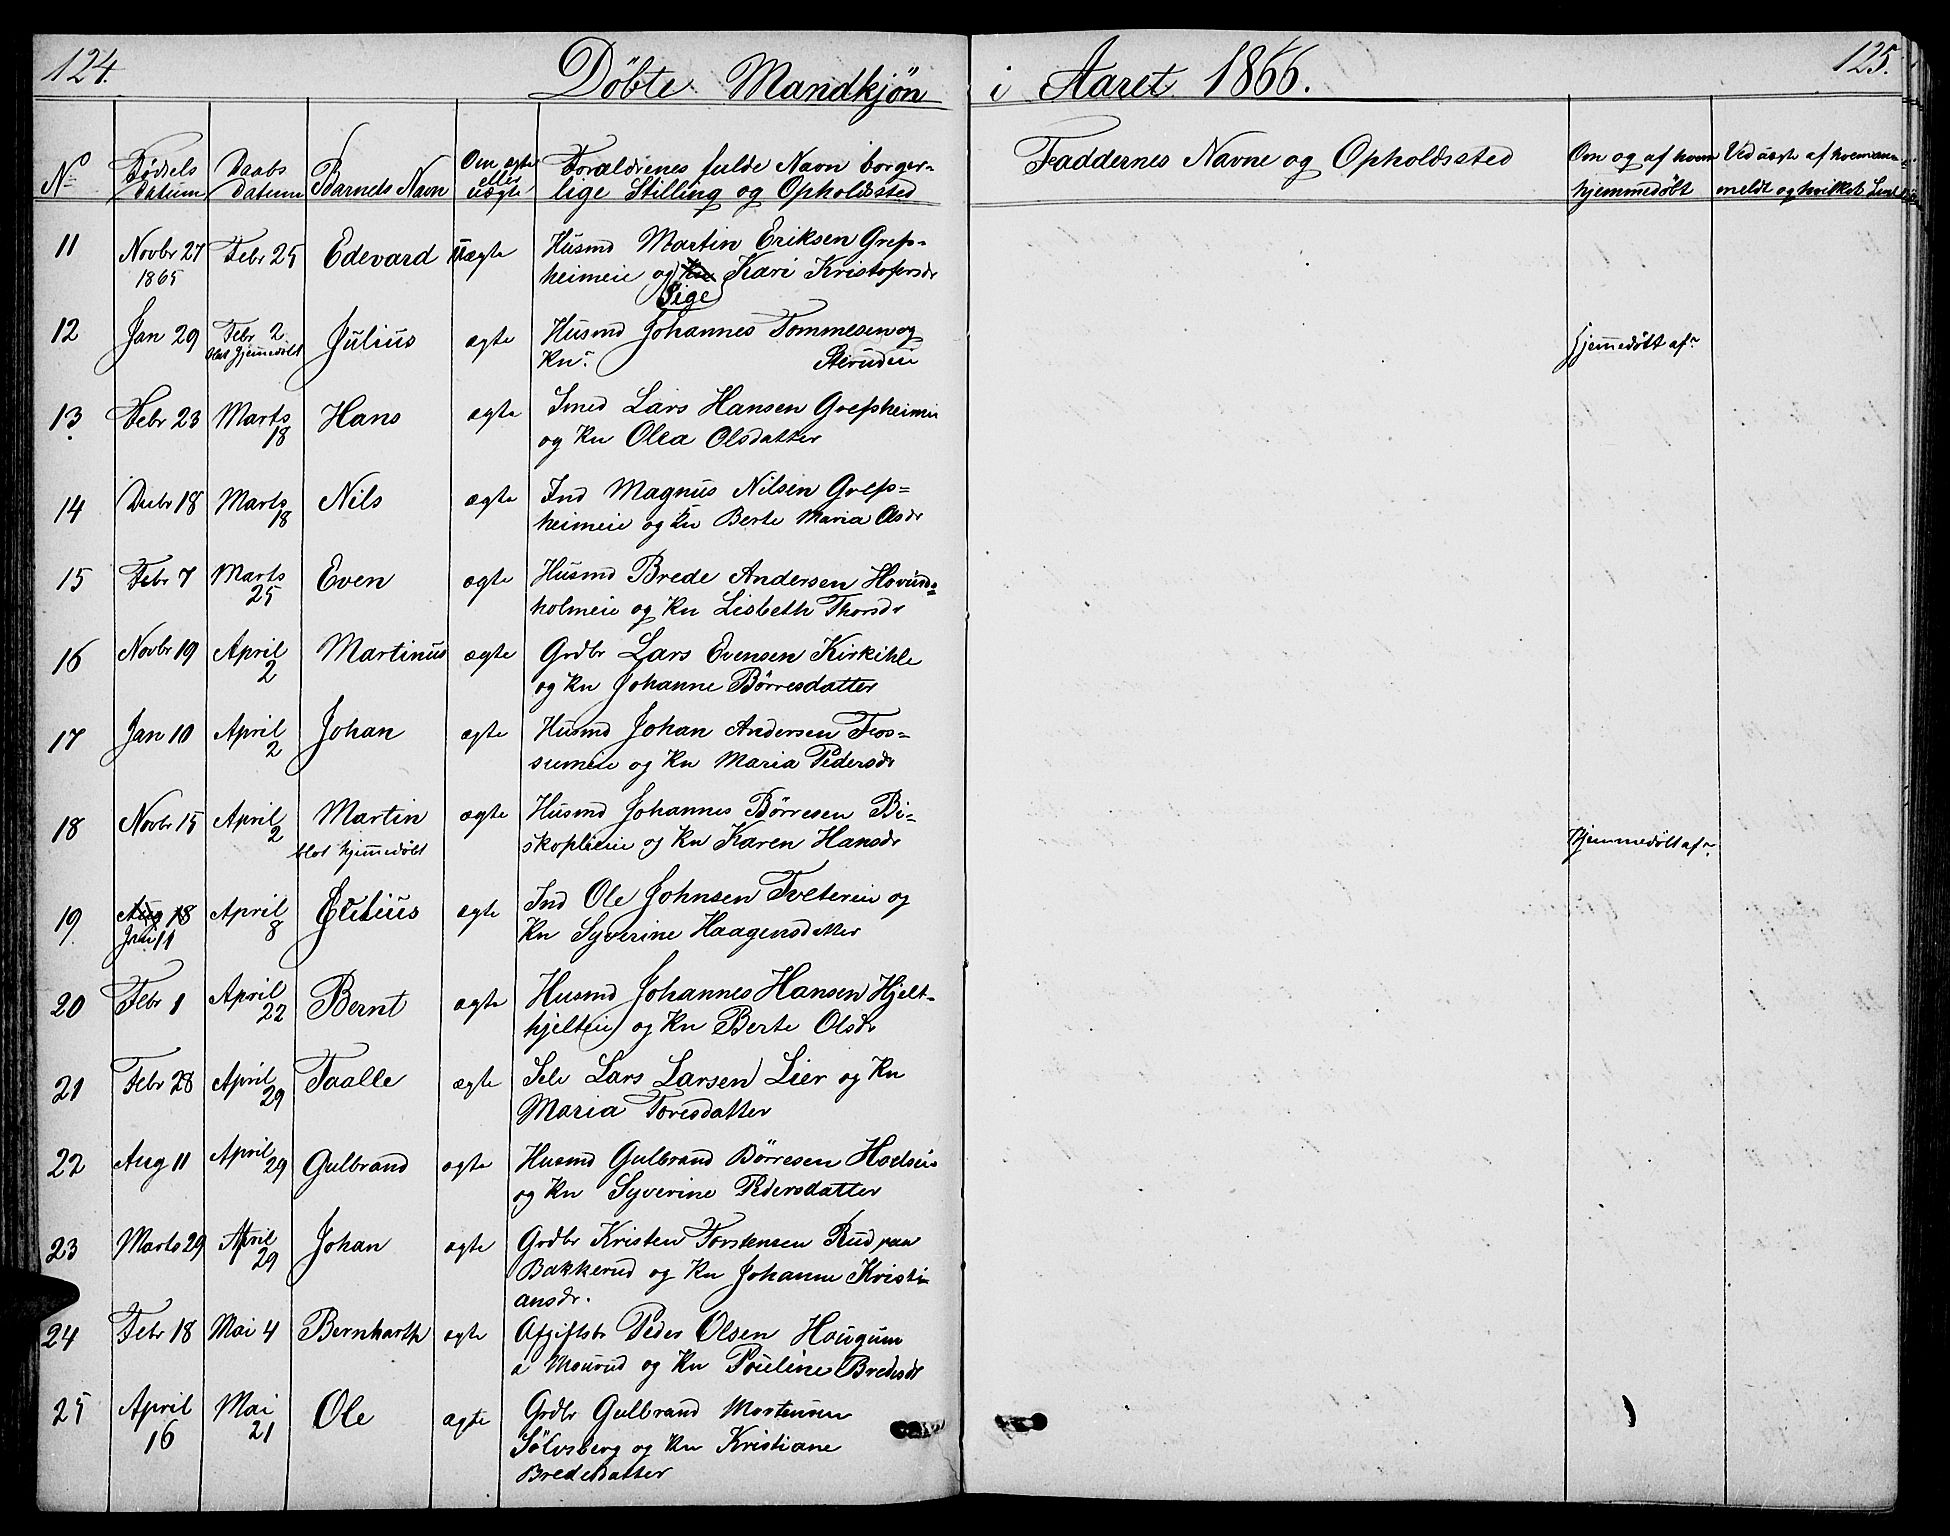 124.
Döbte Mandkjön i Aaret 1866.
125.
No Födsels Datum Daabs Datum Barnets Navn Om ægte eller uægte Forældrenes fulde Navn borger-
lige Stilling og Opholdssted
Faddernes Navne og Opholdssted Om og af hvem hjemmedöbt Ved uægte af hvem an-
meldt og hvilket
11 Novbr 27 1865 Febr 25 Edevard Uægte Husmd Martin Eriksen Greps-
heimeie og Kari Kristofersdr
Pige
12 Jan 29 Febr 2 Julius ægte Husmd Johannes Tommesen og
blot hjemmedöbt Kn.
Hjemmedöbt af
13 Febr 23 Marts 18 Hans ægte Smed Lars Hansen Grepsheimeie
og Kn Olea Olsdatter
14 Debr 18 Marts 18 Nils ægte Ind Magnus Nilsen Greps=
heimeie og Kn Berte Maria Olsdr
15 Febr 7 Marts 25 Even ægte Husmd Brede Andersen Hovinds=
holmeie og Kn Lisbeth Thorsdr
16 Novbr 19 April 2 Martinus ægte Grdbr Lars Evensen Kirkihle
og Kn Johanne Börresdatter
17 Jan 10 April 2 Johan ægte Husmd Johan Andersen Fos=
sumeie og Kn Maria Pedersdr
18 Novbr 15 April 2 Martin ægte Husmd Johannes Börresen Bi-
blot hjemmedöbt skoplieie og Kn Karen Hansdr
Hjemmedöbt af
19 Aug 18 April 8 ægte Ind Ole Johnsen Tvetereie og
Jan 11 Kn Syverine Haagensdatter
20 Febr 1 April 22 Bernt ægte Husmd Johannes Hansen Hjelt-
hjelteie og Kn Berte Olsdr
21 Febr 28 April 29 Taalle ægte Selv Lars Larsen Lier og Kn
Maria Toresdatter
22 Aug 11 April 29 Gulbrand ægte Husmd Gulbrand Börresen Hoelseie
og Kn Syverine Pedersdatter
23 Marts 29 April 29 Johan ægte Grdbr Kristen Torstensen Rud paa
Bakkerud og Kn Johanne Kristi-
ansdr.
24 Febr 18 Mai 4 Bernharth ægte Afgiftsbr Peder Olsen Hougum
a Mourud og Kn Pouline Bredesdr
25 April 16 Mai 21 Ole ægte Grdbr Gulbrand Mortensen
Sölvsberg og Kn Kristiane
Bredesdatter